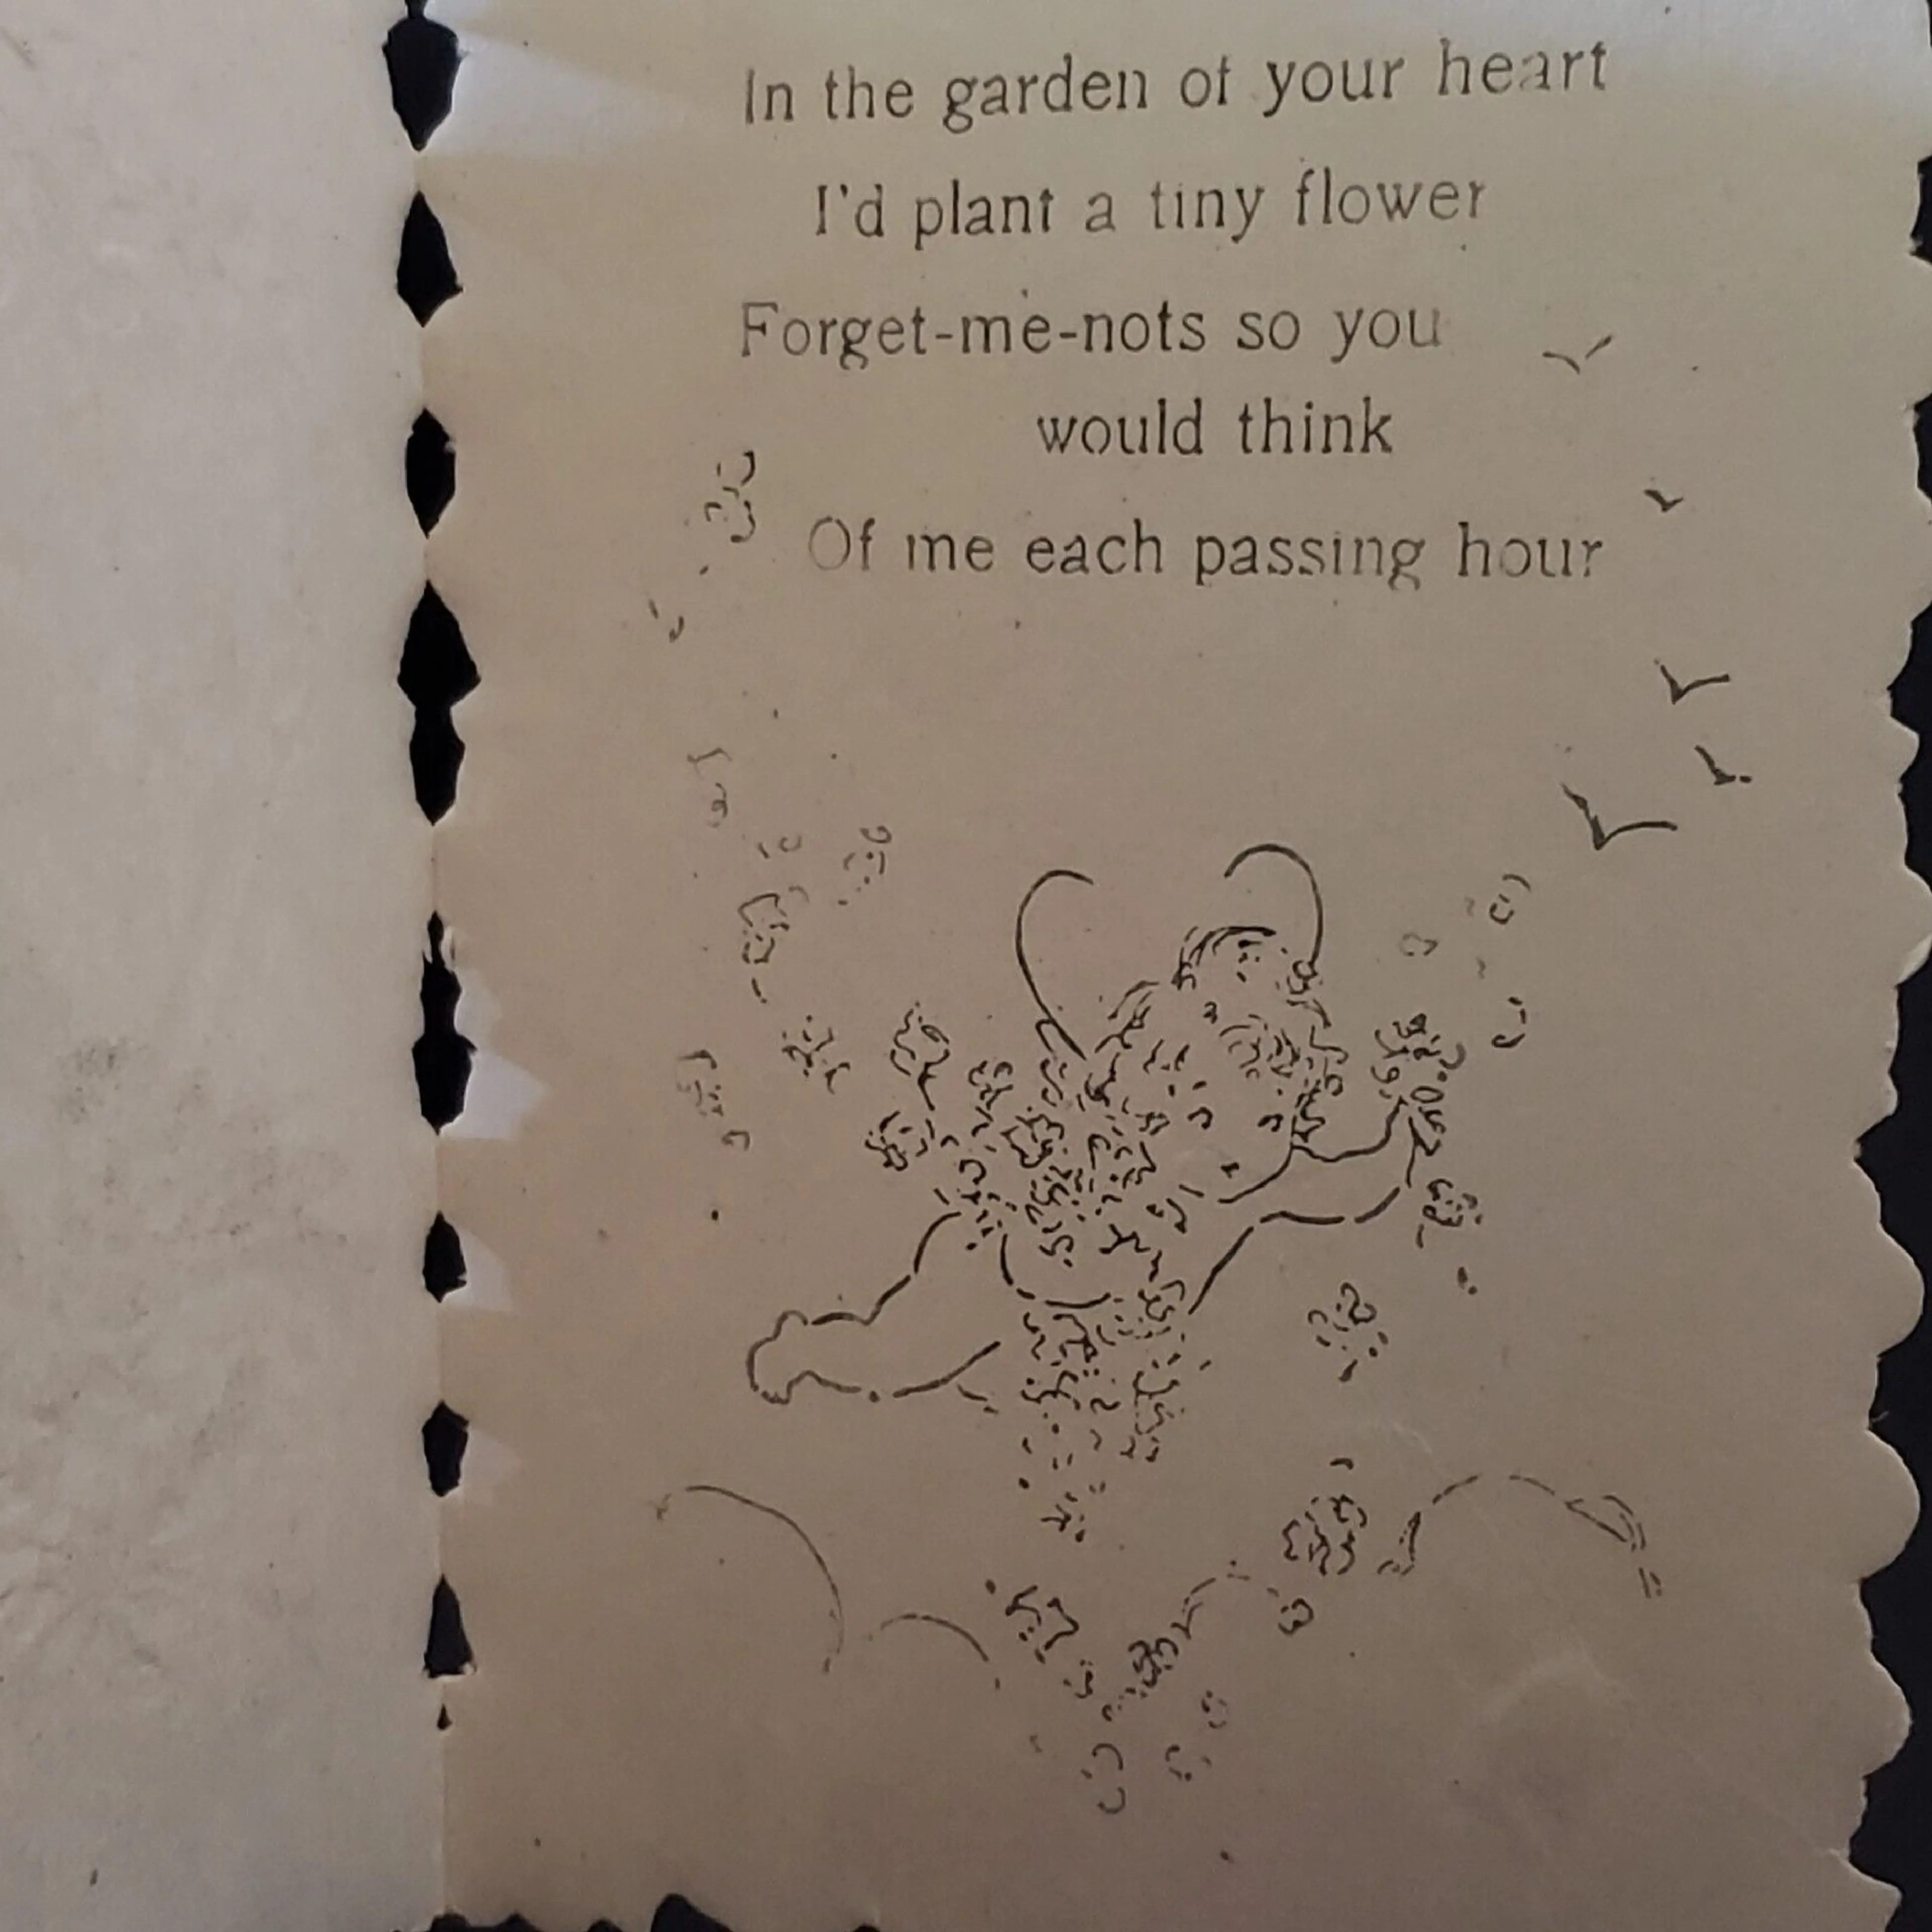 In the garden of your heart
I'd plant a tiny flower
Forget-me-nots so you
would think
Of me each passing hour